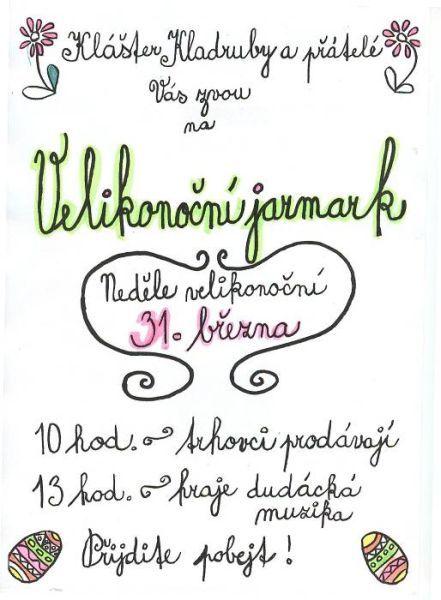 Klášter Kladruby a přátelé
Vás zvou
na
Velikonoční jarmark
Neděle velikonoční
31. března
10 hod. ~ trhovci prodávají
13 hod. ~ hraje dudácká
muzika
Přijdite pobejt!